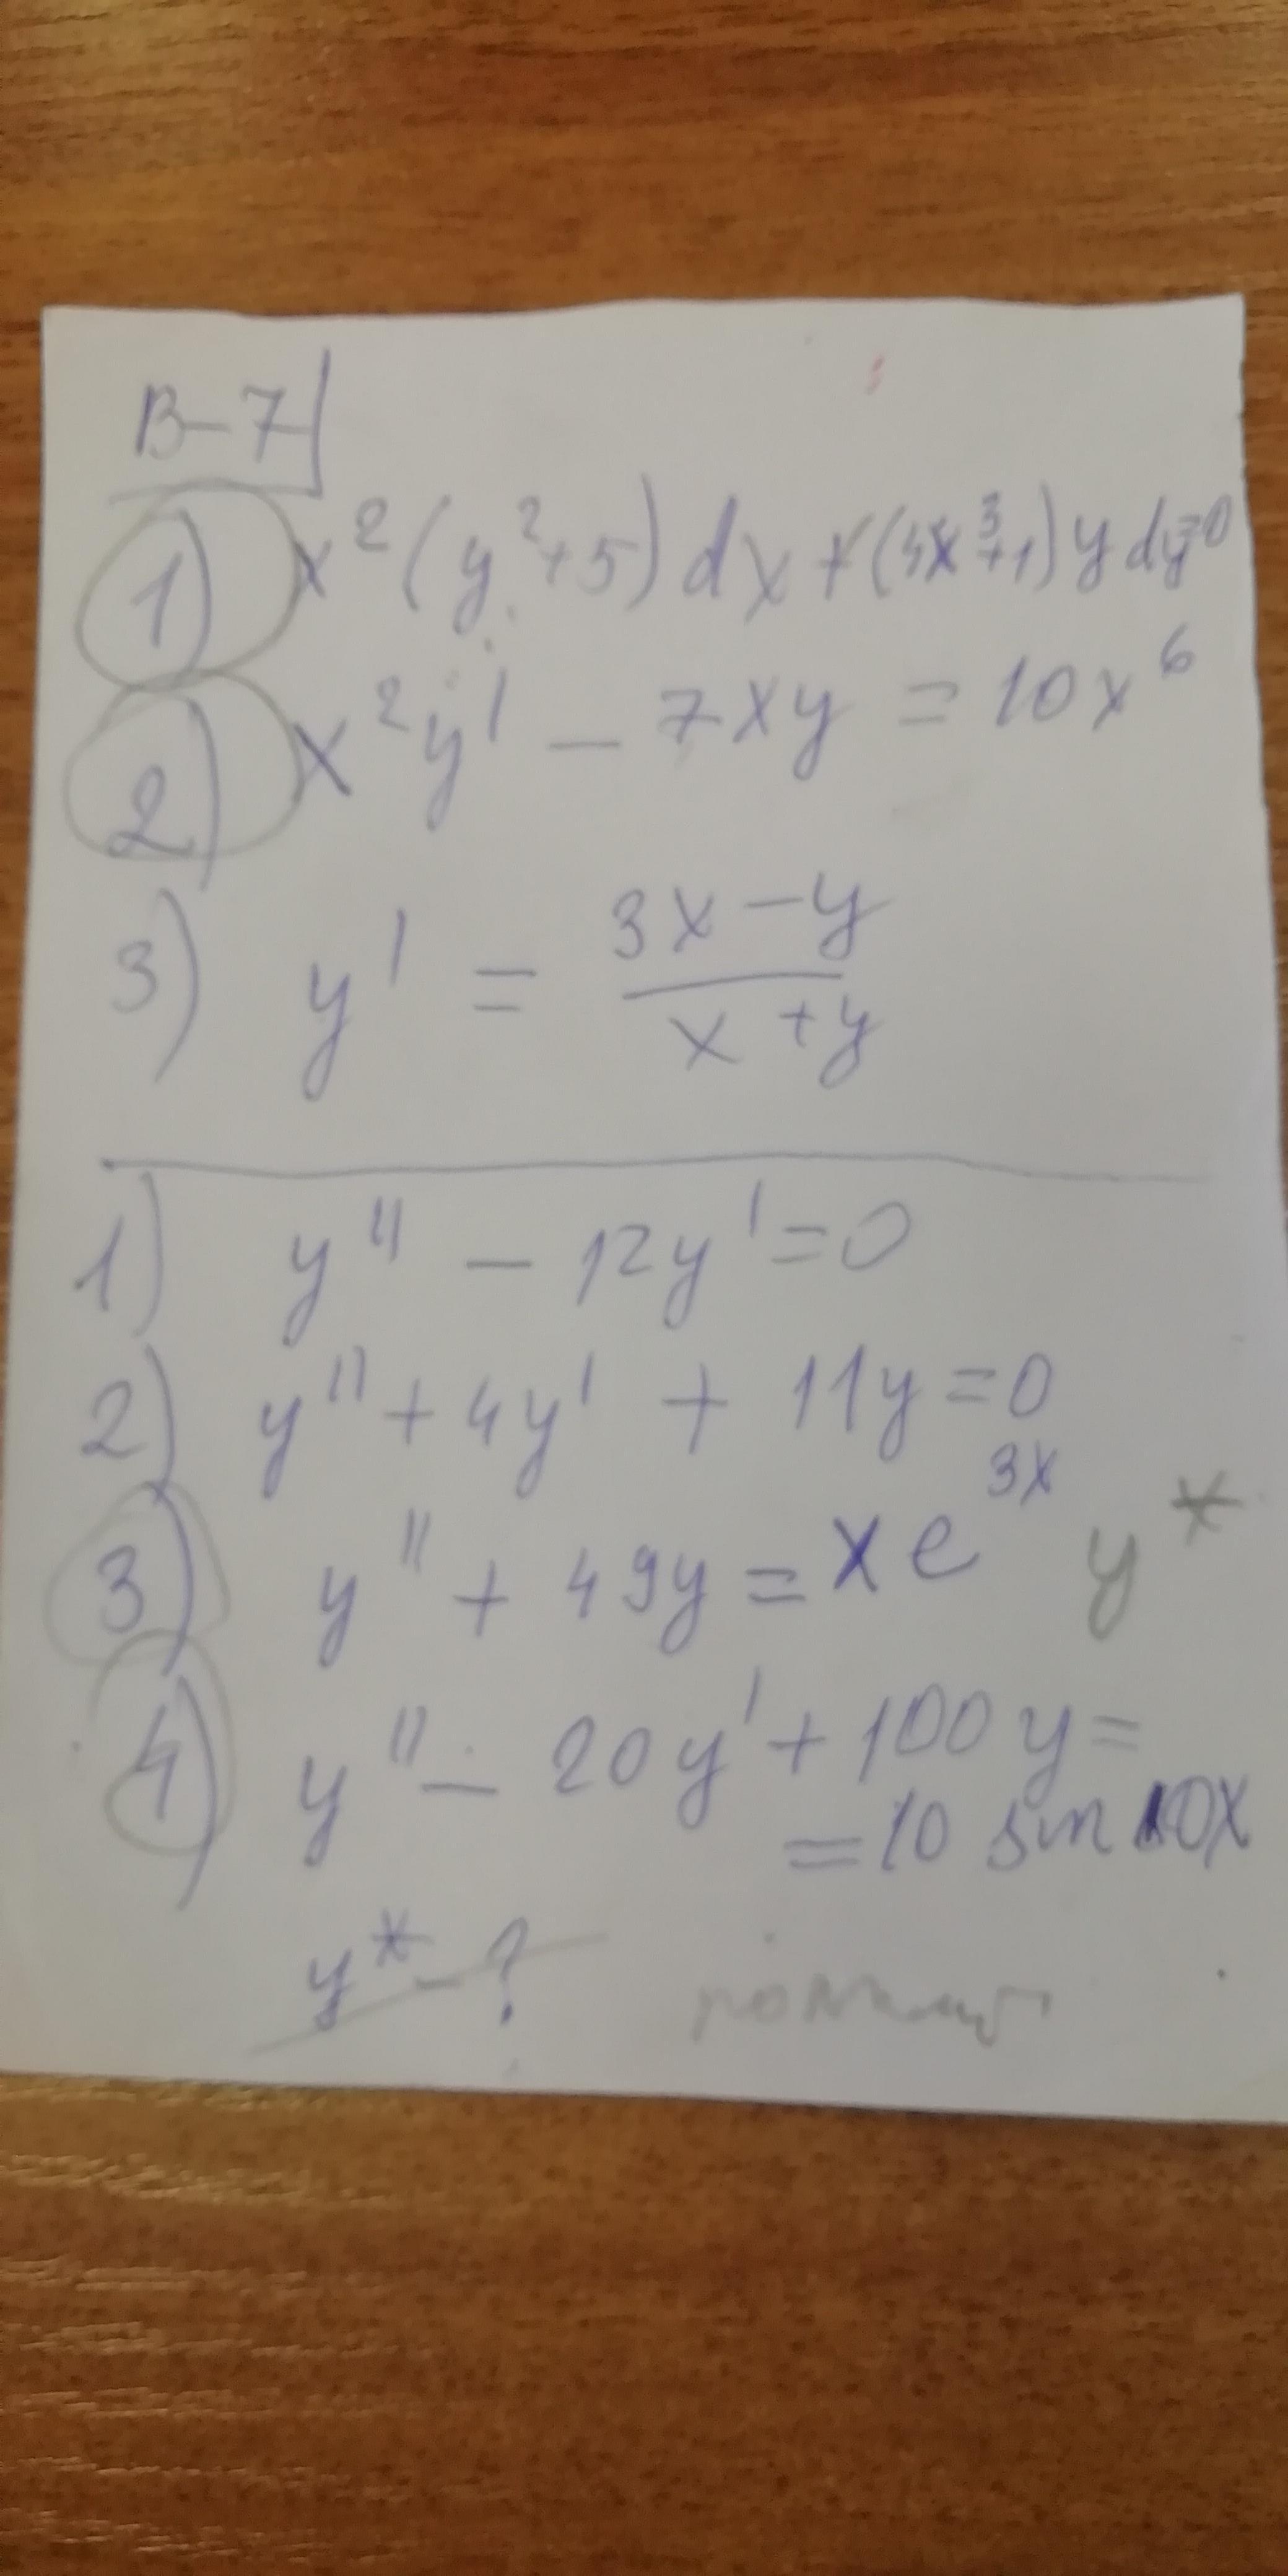 В-7
1) x²(y²+5)dx+(4x³+1)ydy=0
2) x²y' - 7xy = 10x⁶
3) y' = (3x-y)/(x+y)
1) y'' - 12y' = 0
2) y'' + 4y' + 11y = 0
3) y'' + 49y = xe³ˣ y*
4) y'' - 20y' + 100y =
= 10 sin 10x
y* - ?